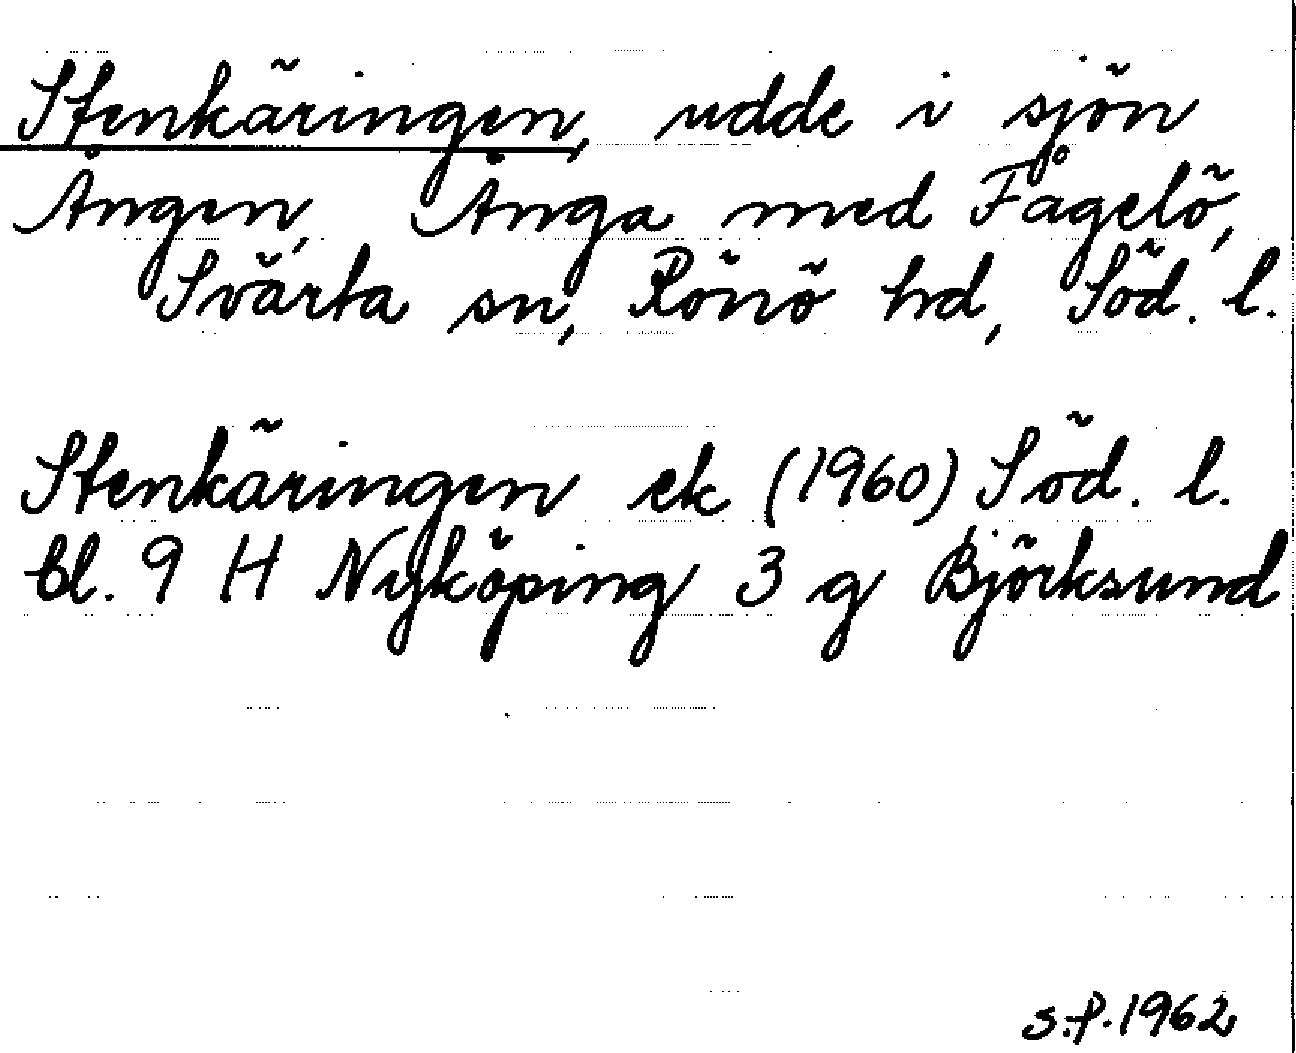 Stenkäringen, udde i sjön
Ången, Ånga med Fågelö,
Svärta sn, Rönö hd, Söd. l.
Stenkäringen ek (1960) Söd. l.
bl. 9 H Nyköping 3 g Björksund
S.P. 1962